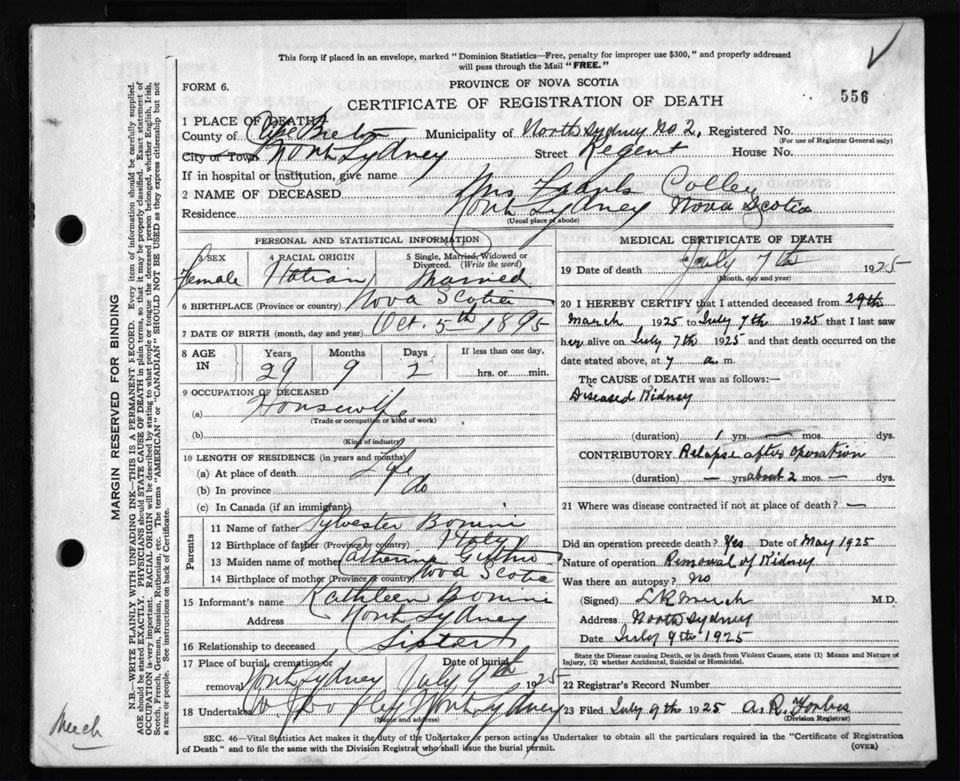 This form if placed in an envelope, marked "Dominion Statistics—Free, penalty for improper use $300," and properly addressed
will pass through the Mail "FREE."
FORM 6.
PROVINCE OF NOVA SCOTIA
CERTIFICATE OF REGISTRATION OF DEATH
556
1 PLACE OF DEATH
County of Cape Breton Municipality of North Sydney No 2, Registered No.
(For use of Registrar General only)
City or Town North Sydney Street Regent House No.
If in hospital or institution, give name
2 NAME OF DECEASED Mrs Colley
Residence North Sydney Nova Scotia
(Usual place of abode)
PERSONAL AND STATISTICAL INFORMATION
3 SEX
Female
4 RACIAL ORIGIN
5 Single, Married, Widowed or
Divorced. (Write the word)
Married
6 BIRTHPLACE (Province or country) Nova Scotia
7 DATE OF BIRTH (month, day and year) Oct. 5th 1895
8 AGE
IN
Years Months Days If less than one day,
29 9 2 hrs. or min.
9 OCCUPATION OF DECEASED
(a) Housewife
(Trade or occupation or kind of work)
(b)
(Kind of industry)
10 LENGTH OF RESIDENCE (in years and months)
(a) At place of death Life
(b) In province do
(c) In Canada (if an immigrant)
Parents
11 Name of father Sylvester Bonini
12 Birthplace of father (Province or country) Italy
13 Maiden name of mother Catherine
14 Birthplace of mother (Province or country) Nova Scotia
15 Informant's name Kathleen Bonini
Address North Sydney
16 Relationship to deceased Sister
17 Place of burial, cremation or Date of burial
removal North Sydney July 9th 1925
18 Undertaker North Sydney
(Name and address)
MEDICAL CERTIFICATE OF DEATH
19 Date of death July 7th 1925
(Month, day and year)
20 I HEREBY CERTIFY that I attended deceased from 29th
March 1925 to July 7th 1925 that I last saw
her alive on July 7th 1925 and that death occurred on the
date stated above, at 7 a. m.
The CAUSE of DEATH was as follows:—
Diseased Kidney
(duration) 1 yrs. — mos. dys.
CONTRIBUTORY. Relapse after operation
(duration) — yrs. about 2 mos. — dys.
21 Where was disease contracted if not at place of death? —
Did an operation precede death? Yes Date of May 1925
Nature of operation Removal of Kidney
Was there an autopsy? No
(Signed) M.D.
Address North Sydney
Date July 9th 1925
State the Disease causing Death, or in death from Violent Causes, state (1) Means and Nature of
Injury, (2) whether Accidental, Suicidal or Homicidal.
22 Registrar's Record Number
23 Filed July 9th 1925 A. R. Forbes
(Division Registrar)
SEC. 46—Vital Statistics Act makes it the duty of the Undertaker or person acting as Undertaker to obtain all the particulars required in the "Certificate of Registration
of Death" and to file the same with the Division Registrar who shall issue the burial permit.
(OVER)
MARGIN RESERVED FOR BINDING
N.B.—WRITE PLAINLY WITH UNFADING INK—THIS IS A PERMANENT RECORD. Every item of information should be carefully supplied.
AGE should be stated EXACTLY. PHYSICIANS should STATE CAUSE OF DEATH in plain terms, so that it may be properly classified. Exact statement of
OCCUPATION is very important. RACIAL ORIGIN will be described by stating to what people or tongue the deceased person belonged, whether English, Irish,
Scotch, French, German, Russian, Ruthenian, etc. The terms "AMERICAN" or "CANADIAN" SHOULD NOT BE USED as they express citizenship but not
a race or people. See instructions on back of Certificate.
Meech